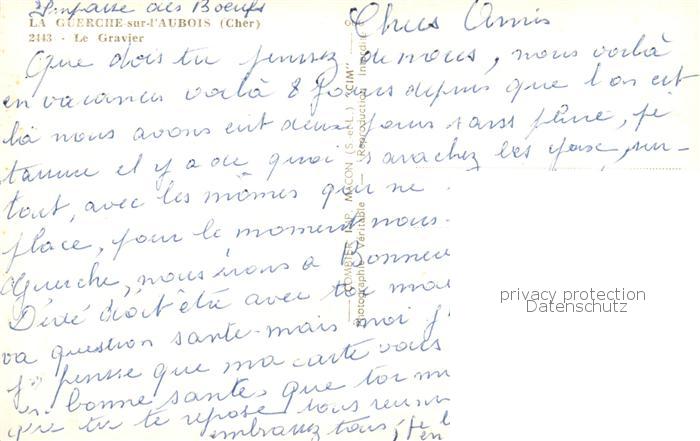 Impasse des Boeufs
LA GUERCHE-sur-l'AUBOIS (Cher)
2443 - Le Gravier
Chers Amis
Que dois tu penser de nous, nous voilà
en vacances voilà 8 jours depuis que l'on est
là nous avons eut deux jours sans pluie, je
t'assure il y a de quoi s'arachez les yeux, sur-
tout, avec les mômes qui ne
place, pour le moment nous
Guerche, nous irons a
Dédé doit être avec toi moi
va question santé mais moi j'
je pensse que ma carte vous
en bonne santes que toi
que tu te repose tous
embrassez tous,
COMBIER IMP. MACON (S.-et-L.) "CIM"
Photographie Véritable - Reproduction Interdite
privacy protection
Datenschutz